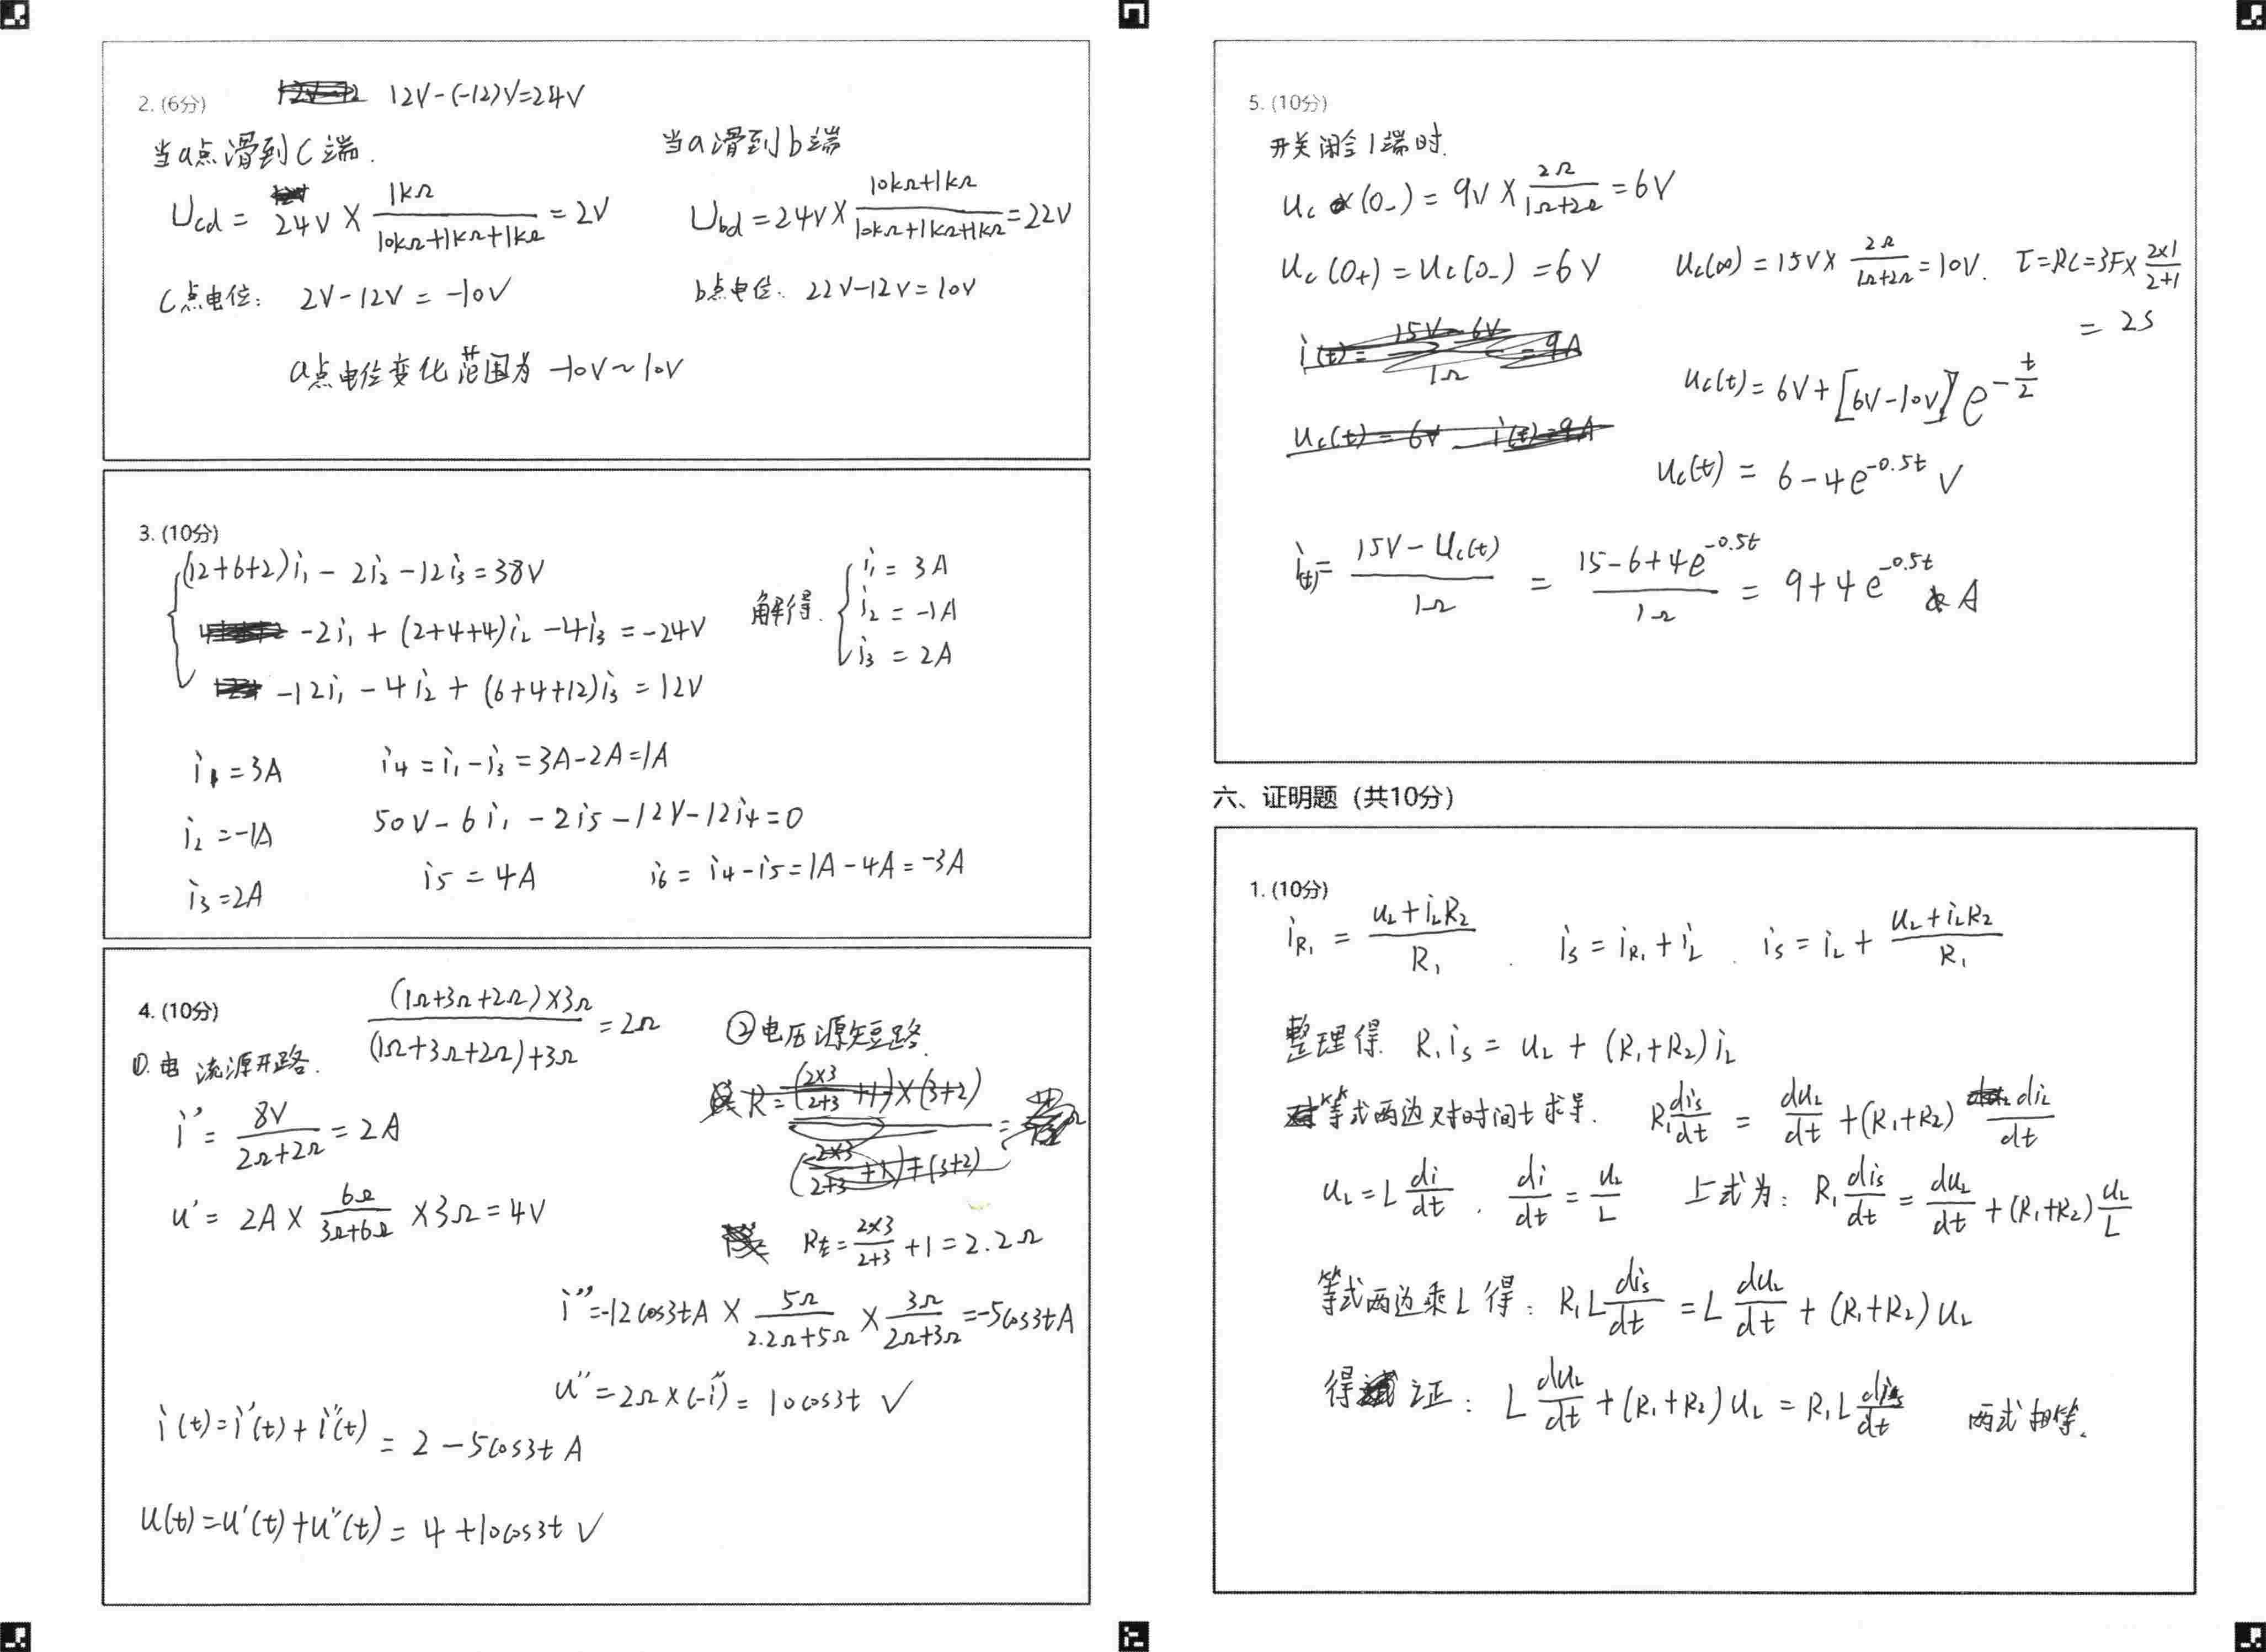 2. (6分)
12V-(-12)V=24V
当a点滑到C端.
当a滑到b端
Ucd = 24V × 1kΩ/(10kΩ+1kΩ+1kΩ) = 2V
Ubd = 24V × (10kΩ+1kΩ)/(10kΩ+1kΩ+1kΩ) = 22V
C点电位: 2V-12V = -10V
b点电位: 22V-12V = 10V
a点电位变化范围为 -10V~10V
3. (10分)
(12+6+2)i₁ - 2i₂ - 12i₃ = 38V
-2i₁ + (2+4+4)i₂ - 4i₃ = -24V
-12i₁ - 4i₂ + (6+4+12)i₃ = 12V
解得.
i₁ = 3A
i₂ = -1A
i₃ = 2A
i₁ = 3A
i₄ = i₁-i₃ = 3A-2A=1A
i₂ = -1A
50V - 6i₁ - 2i₅ - 12V - 12i₄ = 0
i₃ = 2A
i₅ = 4A
i₆ = i₄-i₅ = 1A-4A = -3A
4. (10分)
((1Ω+3Ω+2Ω)×3Ω)/((1Ω+3Ω+2Ω)+3Ω) = 2Ω
①.电流源开路.
i' = 8V/(2Ω+2Ω) = 2A
u' = 2A × 6Ω/(3Ω+6Ω) × 3Ω = 4V
②电压源短路.
R左 = 2×3/(2+3) + 1 = 2.2Ω
i'' = -12cos3tA × 5Ω/(2.2Ω+5Ω) × 3Ω/(2Ω+3Ω) = -5cos3tA
u'' = 2Ω×(-i'') = 10cos3t V
i(t) = i'(t) + i''(t) = 2 - 5cos3t A
u(t) = u'(t) + u''(t) = 4 + 10cos3t V
5. (10分)
开关闭合1端时.
uc(0₋) = 9V × 2Ω/(1Ω+2Ω) = 6V
uc(0₊) = uc(0₋) = 6V
uc(∞) = 15V × 2Ω/(1Ω+2Ω) = 10V.
τ = RC = 3F × 2×1/(2+1)
= 2S
uc(t) = 6V + [6V-10V] e^(-t/2)
uc(t) = 6 - 4e^(-0.5t) V
i(t) = (15V - uc(t))/1Ω = (15-6+4e^(-0.5t))/1Ω = 9 + 4e^(-0.5t) A
六、证明题（共10分）
1. (10分)
iR₁ = (uL + iLR₂)/R₁ . is = iR₁ + iL . is = iL + (uL + iLR₂)/R₁
整理得. R₁is = uL + (R₁+R₂)iL
等式两边对时间t求导. R₁ dis/dt = duL/dt + (R₁+R₂) diL/dt
uL = L di/dt . di/dt = uL/L 上式为: R₁ dis/dt = duL/dt + (R₁+R₂) uL/L
等式两边乘L得: R₁L dis/dt = L duL/dt + (R₁+R₂)uL
得证: L duL/dt + (R₁+R₂)uL = R₁L dis/dt 两式相等.